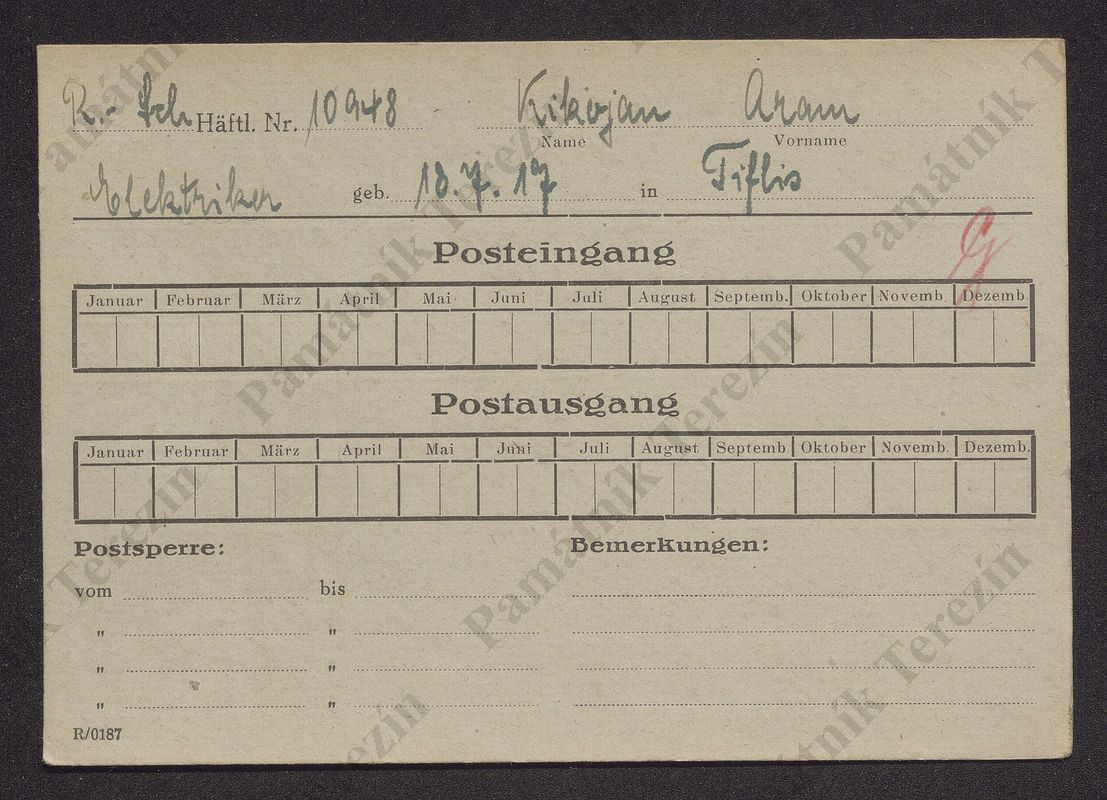 R.- Sch Häftl. Nr. 10948 Kikojan Aram
Name Vorname
Elektriker geb. 18.7.17 in Tiflis
G
Posteingang
Januar Februar März April Mai Juni Juli August Septemb. Oktober Novemb. Dezemb.
Postausgang
Januar Februar März April Mai Juni Juli August Septemb Oktober Novemb. Dezemb.
Postsperre: Bemerkungen:
vom bis
" "
" "
" "
R/0187
Památník Terezín